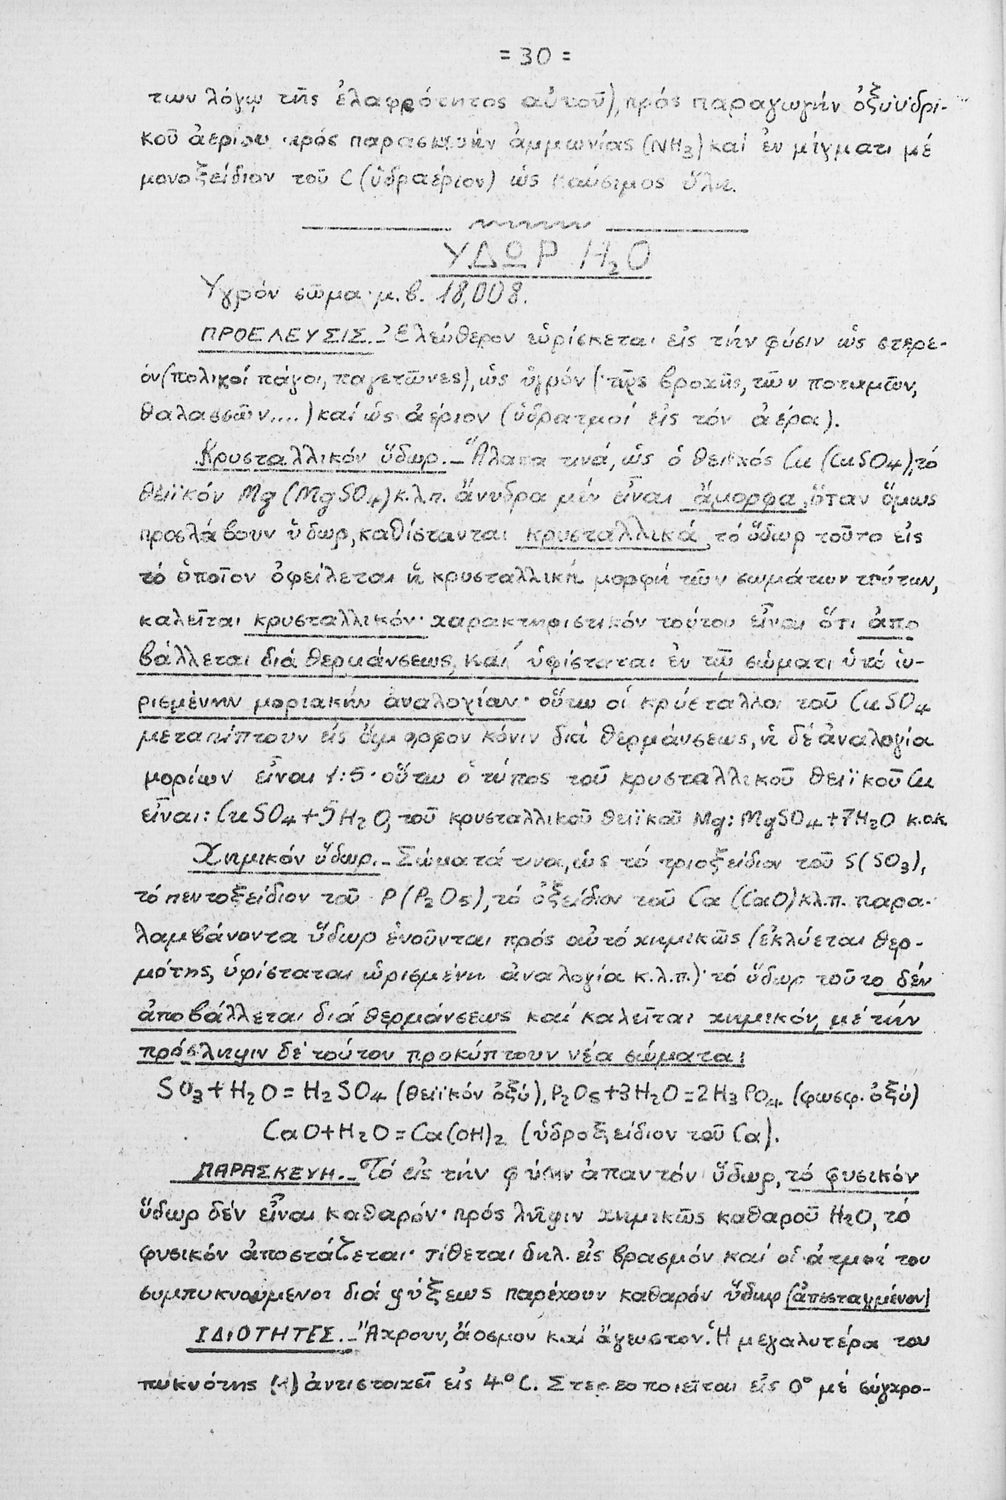 = 30 =
των λόγῳ τῆς ἐλαφρότητος αὐτοῦ), πρός παραγωγήν ὀξυϋδρι-
κοῦ ἀερίου πρός παρασκευήν ἀμμωνίας (NH3) καί ἐν μίγματι μέ
μονοξείδιον τοῦ C (ὑδραέριον) ὡς καύσιμος ὕλη.
ΥΔΩΡ H2O
Ὑγρόν σῶμα· μ.β. 18,008.
ΠΡΟΕΛΕΥΣΙΣ.- Ἐλεύθερον εὑρίσκεται εἰς τήν φύσιν ὡς στερε-
όν (πολικοί πάγοι, παγετῶνες), ὡς ὑγρόν (τῆς βροχῆς, τῶν ποταμῶν,
θαλασσῶν....) καί ὡς ἀέριον (ὑδρατμοί εἰς τόν ἀέρα).
Κρυσταλλικόν ὕδωρ.- Ἅλατα τινά, ὡς ὁ θειϊκός Cu (CuSO4), τό
θειϊκόν Mg (MgSO4) κ.λ.π. ἄνυδρα μέν εἶναι ἄμορφα, ὅταν ὅμως
προσλάβουν ὕδωρ, καθίστανται κρυσταλλικά, τό ὕδωρ τοῦτο εἰς
τό ὁποῖον ὀφείλεται ἡ κρυσταλλική μορφή τῶν σωμάτων τούτων,
καλεῖται κρυσταλλικόν· χαρακτηριστικόν τούτου εἶναι ὅτι ἀπο
βάλλεται διά θερμάνσεως, καί ὑφίσταται ἐν τῷ σώματι ὑπό ὡ-
ρισμένην μοριακήν ἀναλογίαν· οὕτω οἱ κρύσταλλοι τοῦ CuSO4
μεταπίπτουν εἰς ἄμορφον κόνιν διά θερμάνσεως, ἡ δέ ἀναλογία
μορίων εἶναι 1:5· οὕτω ὁ τύπος τοῦ κρυσταλλικοῦ θειϊκοῦ Cu
εἶναι: CuSO4+5H2O, τοῦ κρυσταλλικοῦ θειϊκοῦ Mg: MgSO4+7H2O κ.ο.κ.
Χημικόν ὕδωρ.- Σώματά τινα, ὡς τό τριοξείδιον τοῦ S (SO3),
τό πεντοξείδιον τοῦ P (P2O5), τό ὀξείδιον τοῦ Ca (CaO) κλ.π. παρα-
λαμβάνοντα ὕδωρ ἑνοῦνται πρός αὐτό χημικῶς (ἐκλύεται θερ-
μότης, ὑφίσταται ὡρισμένη ἀναλογία κ.λ.π.)· τό ὕδωρ τοῦτο δέν
ἀποβάλλεται διά θερμάνσεως καί καλεῖται χημικόν, μέ τήν
πρόσληψιν δέ τούτου προκύπτουν νέα σώματα:
SO3+H2O=H2SO4 (θειϊκόν ὀξύ), P2O5+3H2O=2H3PO4 (φωσφ. ὀξύ)
CaO+H2O=Ca(OH)2 (ὑδροξείδιον τοῦ Ca).
ΠΑΡΑΣΚΕΥΗ.- Τό εἰς τήν φύσιν ἀπαντόν ὕδωρ, τό φυσικόν
ὕδωρ δέν εἶναι καθαρόν· πρός λῆψιν χημικῶς καθαροῦ H2O, τό
φυσικόν ἀποστάζεται· τίθεται δηλ. εἰς βρασμόν καί οἱ ἀτμοί του
συμπυκνούμενοι διά ψύξεως παρέχουν καθαρόν ὕδωρ (ἀπεσταγμένον)
ΙΔΙΟΤΗΤΕΣ.- Ἄχρουν, ἄοσμον καί ἄγευστον. Ἡ μεγαλυτέρα του
πυκνότης (1) ἀντιστοιχεῖ εἰς 4° C. Στερεοποιεῖται εἰς 0° μέ σύγχρο-